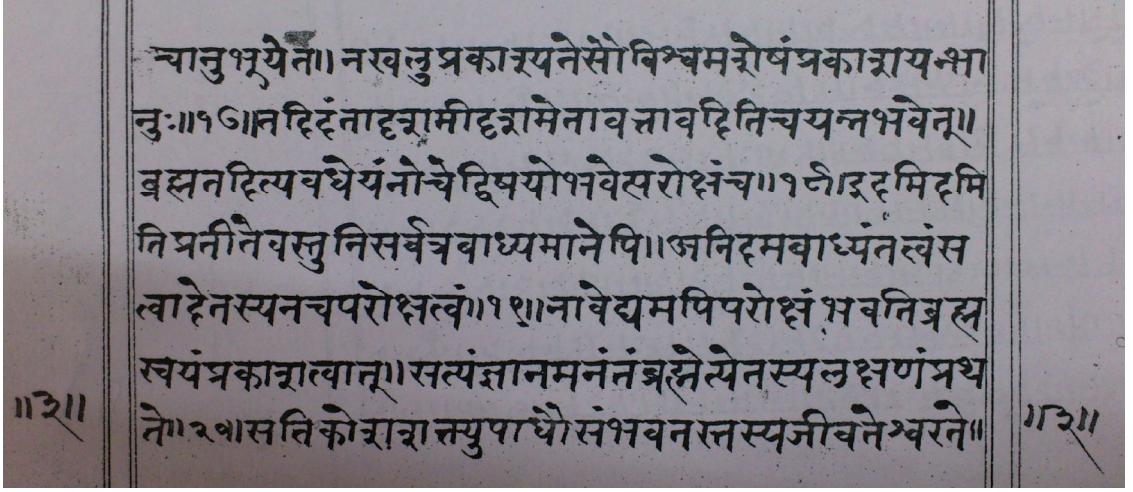 न्चानुभूयेत॥ नखलुप्रकाश्यतेसौविश्वमशेषंप्रकाशयन्भा
नुः॥१७॥तदिदंतादृशमीदृशमेतावत्तावदितिचयन्नभवेत्॥
ब्रह्मतदित्यवधेयंनोचेद्विषयोभवेत्परोक्षंच॥१८॥इदमिदमि
तिप्रतीतेवस्तुनिसर्वत्रवाध्यमानेपि॥अनिदमवाध्यंतत्वंस
त्वादेतस्यनचपरोक्षत्वं॥१९॥नावेद्यमपिपरोक्षंभवतिब्रह्म
स्वयंप्रकाशत्वात्॥सत्यंज्ञानमनंतंब्रह्मेत्येतस्यलक्षणंप्रथ
ते॥२०॥सतिकोशशक्त्युपाधौसंभवतस्तस्यजीवतेश्वरते॥
॥३॥
॥३॥